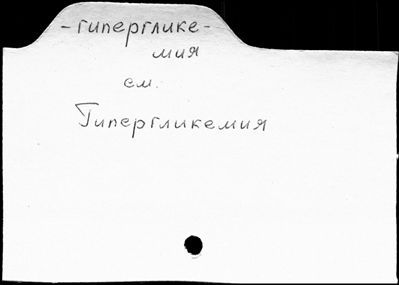 -гипергликe-
мия
см.
Гипергликемия